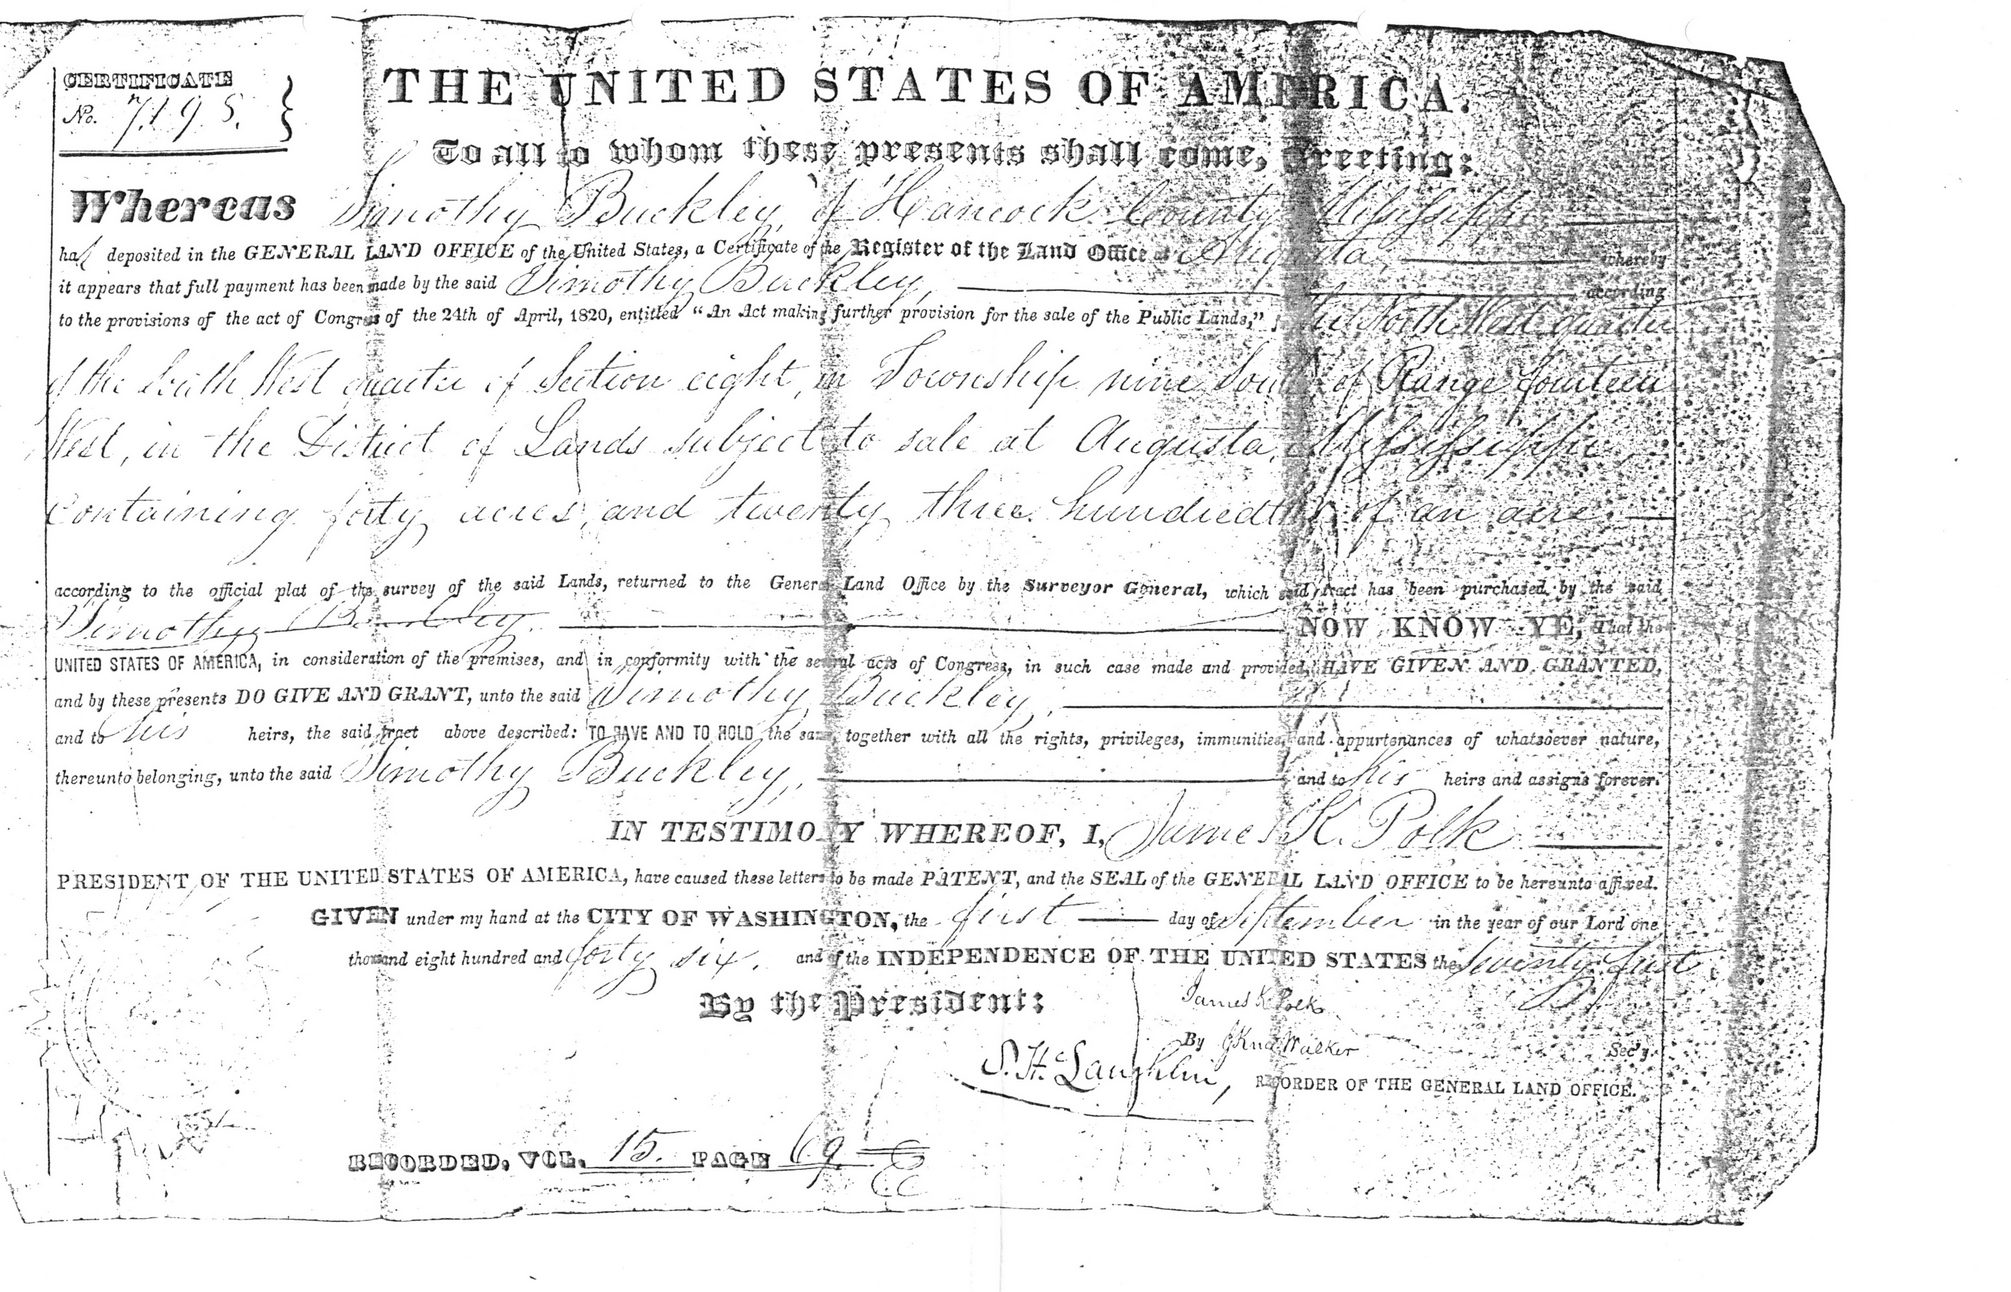 CERTIFICATE
No. 7195.
THE UNITED STATES OF AMERICA.
To all to whom these presents shall come, Greeting:
Whereas Timothy Buckley, of Hancock County Mississippi
has deposited in the GENERAL LAND OFFICE of the United States, a Certificate of the Register of the Land Office at Augusta, whereby
it appears that full payment has been made by the said Timothy Buckley, according
to the provisions of the act of Congress of the 24th of April, 1820, entitled "An Act making further provision for the sale of the Public Lands," for the North West quarter
of the South West quarter of Section eight, in Township nine South of Range fourteen
West, in the District of Lands subject to sale at Augusta, Mississippi,
containing forty acres, and twenty three hundredths of an acre
according to the official plat of the survey of the said Lands, returned to the General Land Office by the Surveyor General, which said tract has been purchased by the said
Timothy Buckley, NOW KNOW YE, That the
UNITED STATES OF AMERICA, in consideration of the premises, and in conformity with the several acts of Congress, in such case made and provided, HAVE GIVEN AND GRANTED,
and by these presents DO GIVE AND GRANT, unto the said Timothy Buckley,
and to his heirs, the said tract above described: TO HAVE AND TO HOLD the same, together with all the rights, privileges, immunities, and appurtenances of whatsoever nature,
thereunto belonging, unto the said Timothy Buckley, and to his heirs and assigns forever.
IN TESTIMONY WHEREOF, I, James K. Polk
PRESIDENT OF THE UNITED STATES OF AMERICA, have caused these letters to be made PATENT, and the SEAL of the GENERAL LAND OFFICE to be hereunto affixed.
GIVEN under my hand at the CITY OF WASHINGTON, the first day of September in the year of our Lord one
thousand eight hundred and forty six, and of the INDEPENDENCE OF THE UNITED STATES the Seventy first
By the President: James K Polk
By J Knox Walker Sec'y.
S. H. Laughlin, RECORDER OF THE GENERAL LAND OFFICE.
RECORDED, VOL. 15. PAGE 69